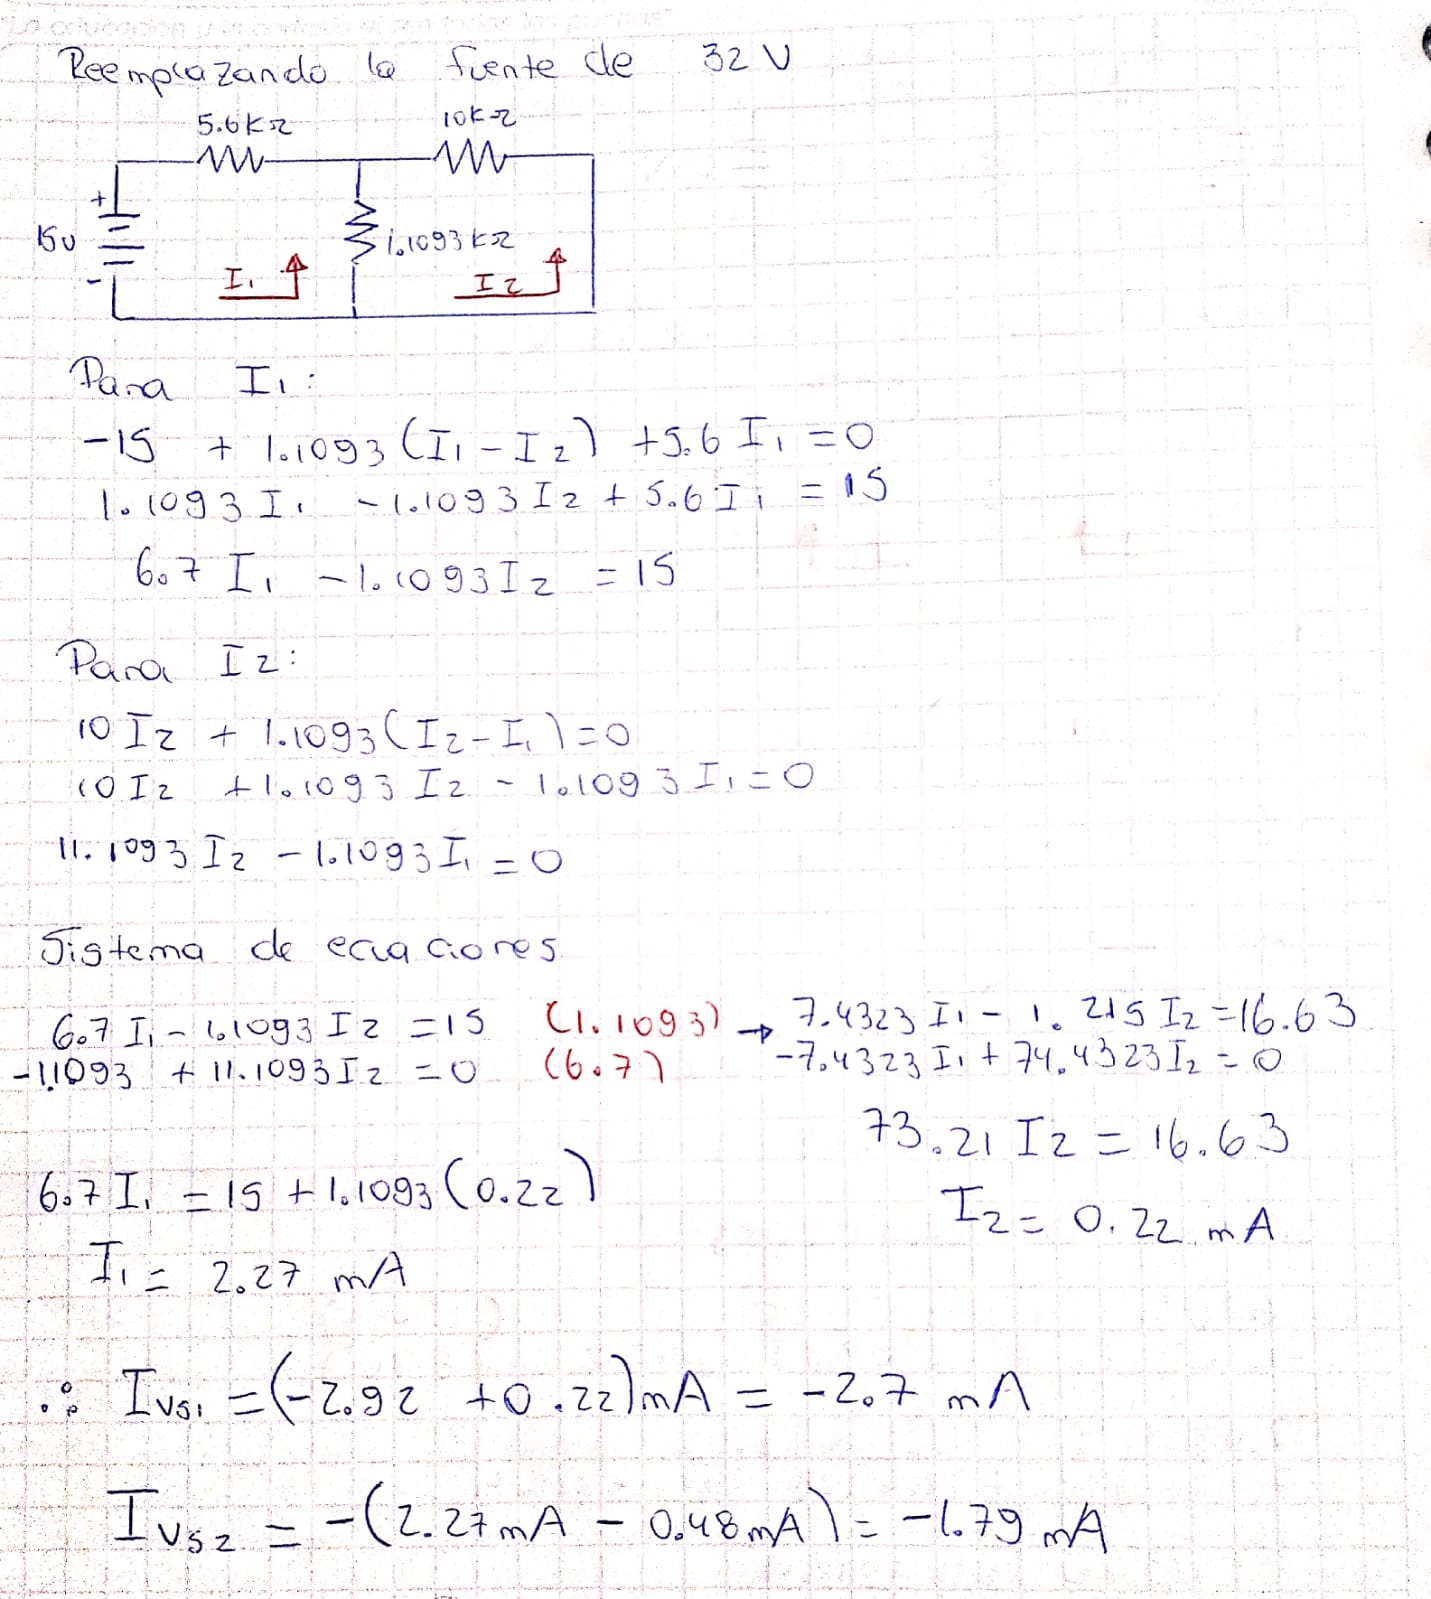 Reemplazando la fuente de 32 V
5.6KΩ 10KΩ
15V + - 1.1093KΩ
I1 I2
Para I1:
-15 + 1.1093(I1-I2) +5.6 I1 =0
1.1093 I1 -1.1093 I2 + 5.6 I1 = 15
6.7 I1 -1.1093 I2 = 15
Para I2:
10 I2 + 1.1093(I2-I1)=0
10 I2 +1.1093 I2 - 1.1093 I1=0
11.1093 I2 -1.1093 I1 =0
Sistema de ecuaciones
6.7 I1 - 1.1093 I2 =15 (1.1093) → 7.4323 I1 - 1.215 I2 =16.63
-1.1093 + 11.1093 I2 =0 (6.7) -7.4323 I1 + 74.4323 I2 = 0
73.21 I2 = 16.63
6.7 I1 = 15 + 1.1093 (0.22)
I2= 0.22 mA
I1 = 2.27 mA
∴ IVS1 =(-2.92 +0.22)mA = -2.7 mA
IVS2 = -(2.27mA - 0.48mA)= -1.79 mA